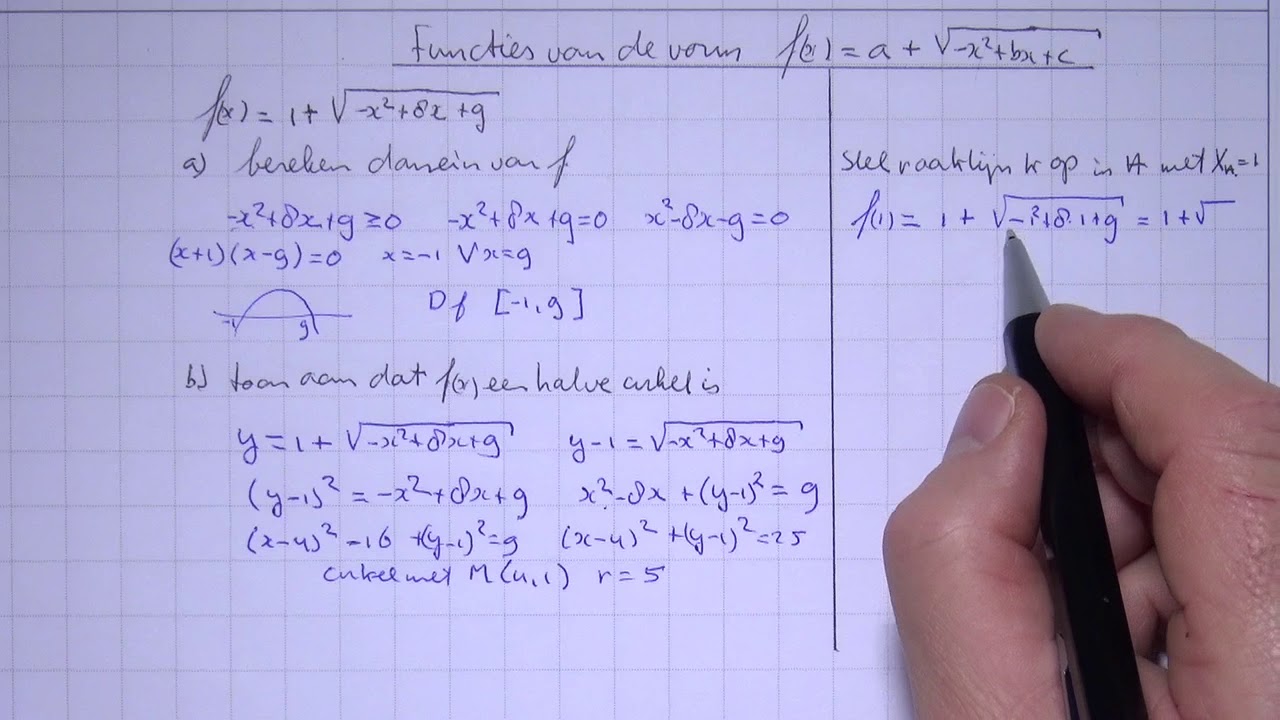 Functies van de vorm f(x) = a + √(-x²+bx+c)
f(x) = 1 + √(-x²+8x+9)
a) bereken domein van f
-x²+8x+9 ≥ 0 -x²+8x+9 = 0 x²-8x-9 = 0
(x+1)(x-9) = 0 x = -1 ∨ x = 9
-1 9 Df [-1,9]
b) toon aan dat f(x) een halve cirkel is
y = 1 + √(-x²+8x+9) y-1 = √(-x²+8x+9)
(y-1)² = -x²+8x+9 x²-8x + (y-1)² = 9
(x-4)² -16 +(y-1)² = 9 (x-4)² +(y-1)² = 25
cirkel met M(4,1) r = 5
Stel raaklijn k op in A met X_A = 1
f(1) = 1 + √(-1²+8·1+9) = 1+√